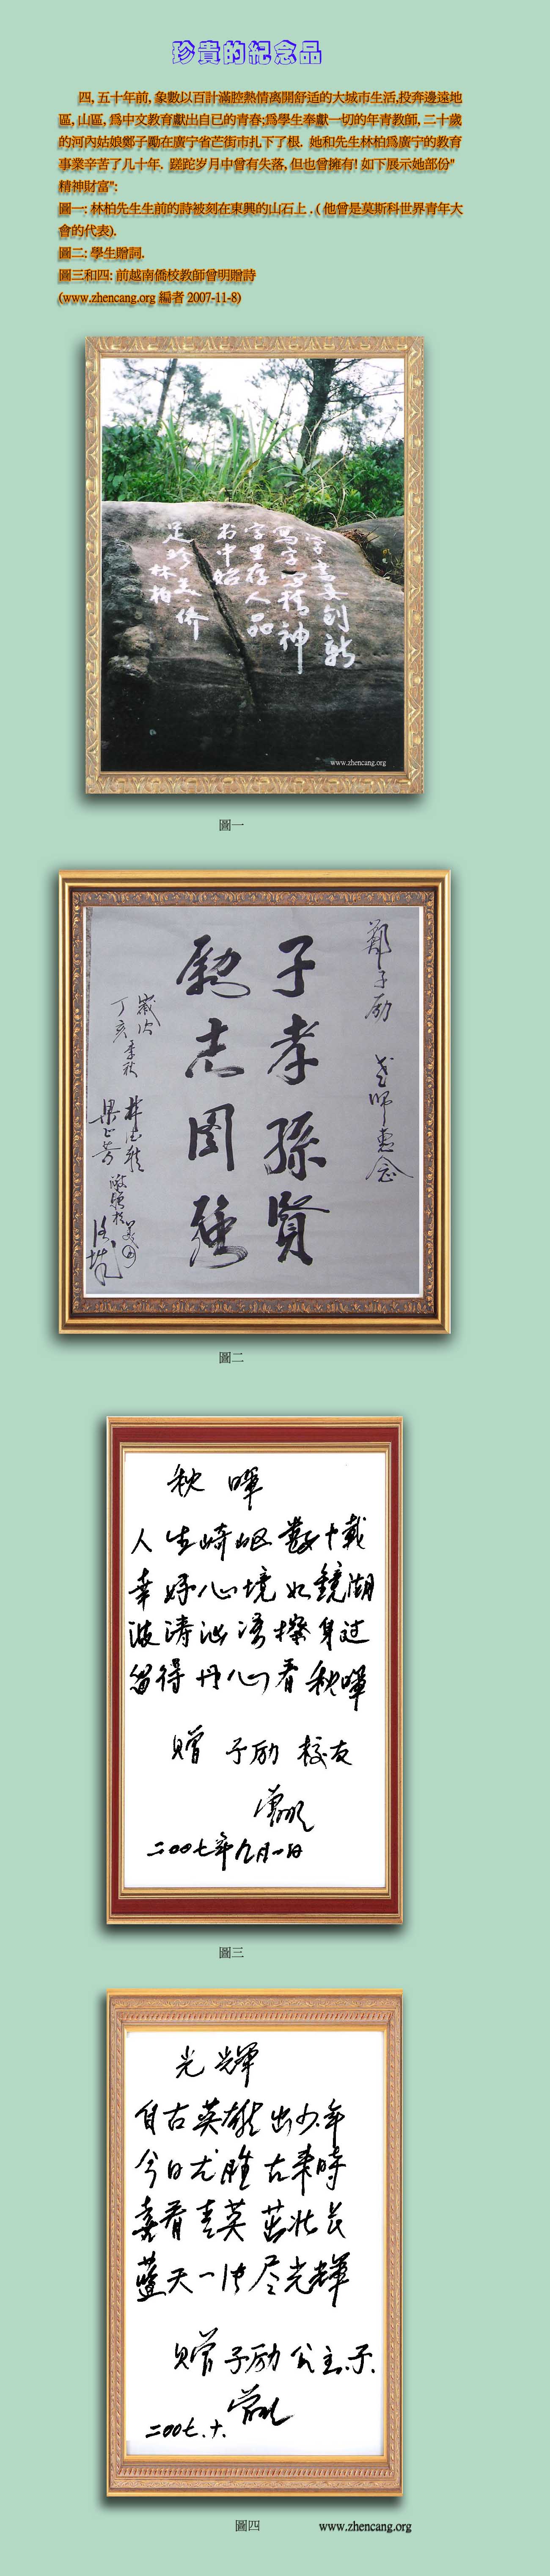 珍貴的紀念品
四, 五十年前, 象數以百計滿腔熱情离開舒适的大城市生活,投奔邊遠地
區, 山區, 爲中文教育獻出自已的青春;爲學生奉獻一切的年青教師, 二十歲
的河內姑娘鄭子勵在廣宁省芒街市扎下了根. 她和先生林柏爲廣宁的教育
事業辛苦了几十年. 蹉跎岁月中曾有失落, 但也曾擁有! 如下展示她部份"
精神財富":
圖一: 林柏先生生前的詩被刻在東興的山石上 . ( 他曾是莫斯科世界青年大
會的代表).
圖二: 學生贈詞.
圖三和四: 前越南僑校教師曾明贈詩
(www.zhencang.org 編者 2007-11-8)
字書要创新
写字写精神
字里存人品
书中
足珍
林柏
www.zhencang.org
圖一
鄭子励 老師惠念
子孝孫賢
励志图強
歲次
丁亥季秋
梁正芳
圖二
秋暉
人生崎岖數十載
幸好心境如鏡湖
波涛汹涌擦身过
留得丹心看秋暉
贈 子励 校友
曾明
二00七年九月一日
圖三
光輝
自古英雄出少年
今日尤胜古来時
喜看育英茁壮長
蓝天一片尽光輝
贈子励公主.示.
曾明
二00七.十.
圖四
www.zhencang.org